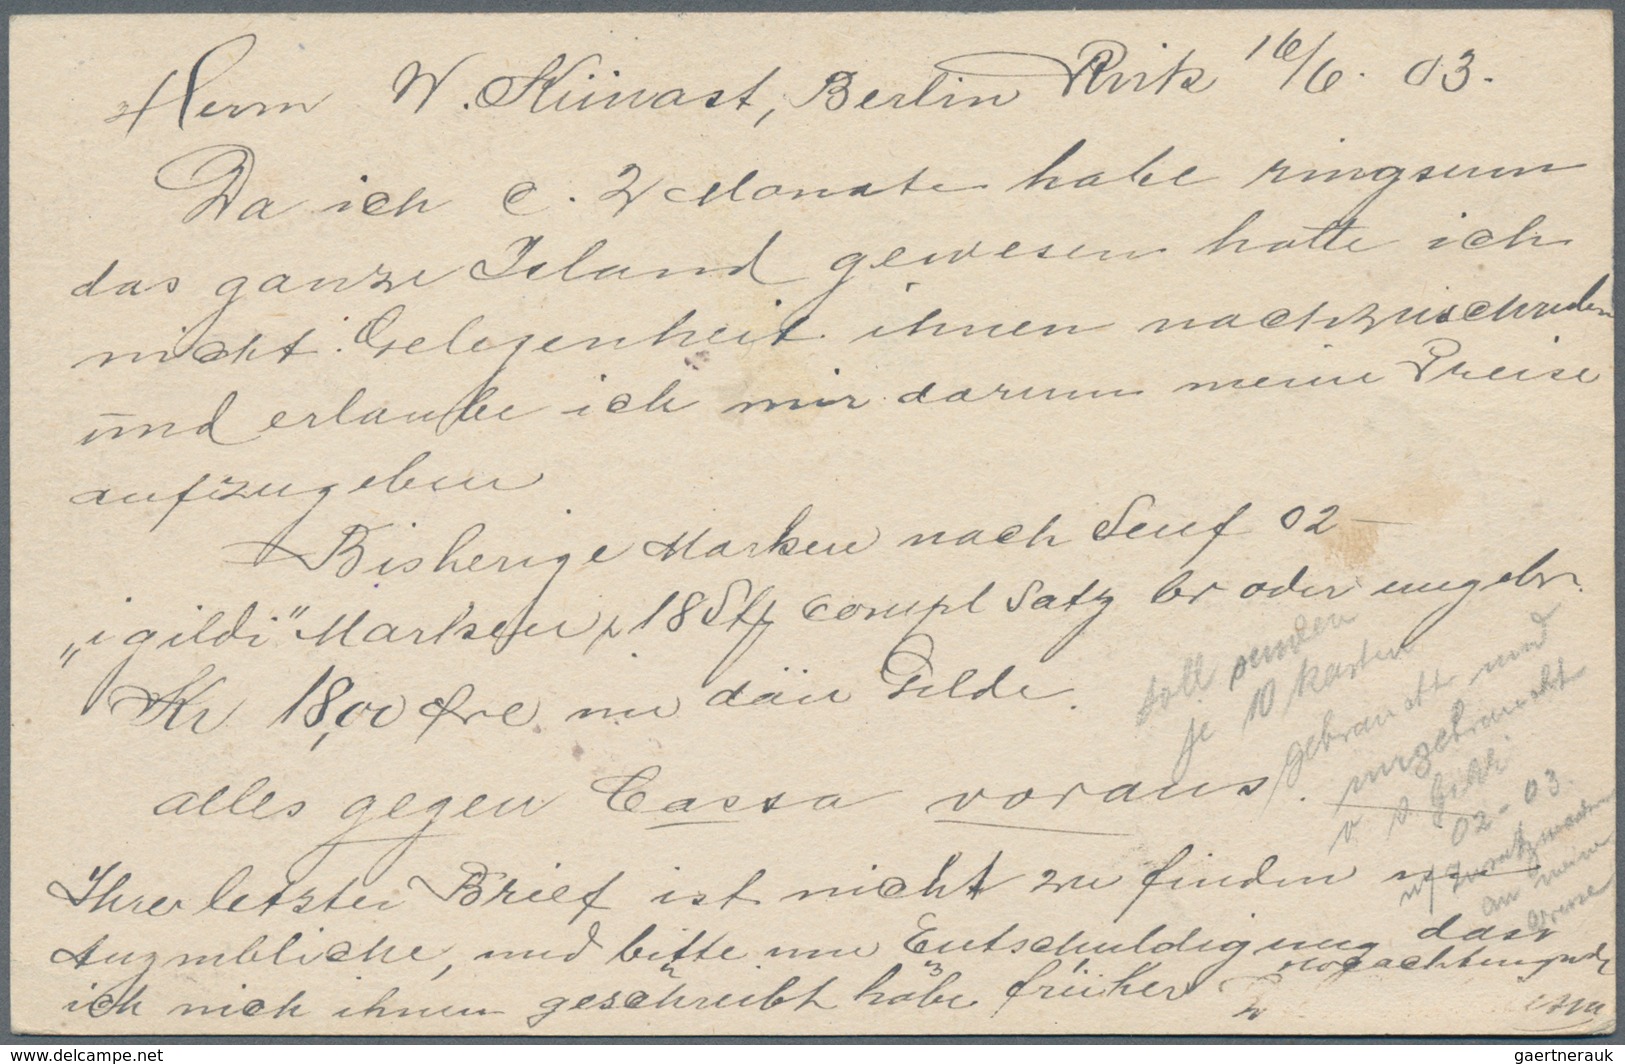 Herrn W. Künast, Berlin Rvík 16/6. 03.
Da ich c. 2 Monate habe ringsum
das ganze Island gewesen hatte ich
nicht Gelegenheit ihnen nachzuschreiben
und erlaube ich mir darum meine Preise
aufzugeben
Bisherige Marken nach Senf 02
„i gildi" Marken, 18 Stk compl Satz br oder ungebr.
Kr 18,00 Øre in dän Gelde.
alles gegen Cassa voraus.
Ihrer letzter Brief ist nicht zu finden
Augenblicke, und bitte um Entschuldigung dass
ich nich ihnen geschreibt habe früher
soll senden
je 10 Karten
gebraucht und
ungebraucht
Gildi
02-03.
an meine
Adresse
delcampe.net
gaertnerauk